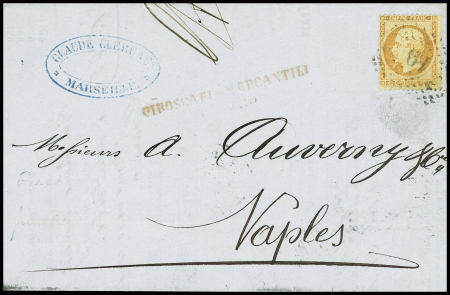 EMPIRE FRANC
CLAUDE CLERC
MARSEILLE
PIROSCAFI MERCANTILI
Messieurs A. Auverny & Cie
Naples